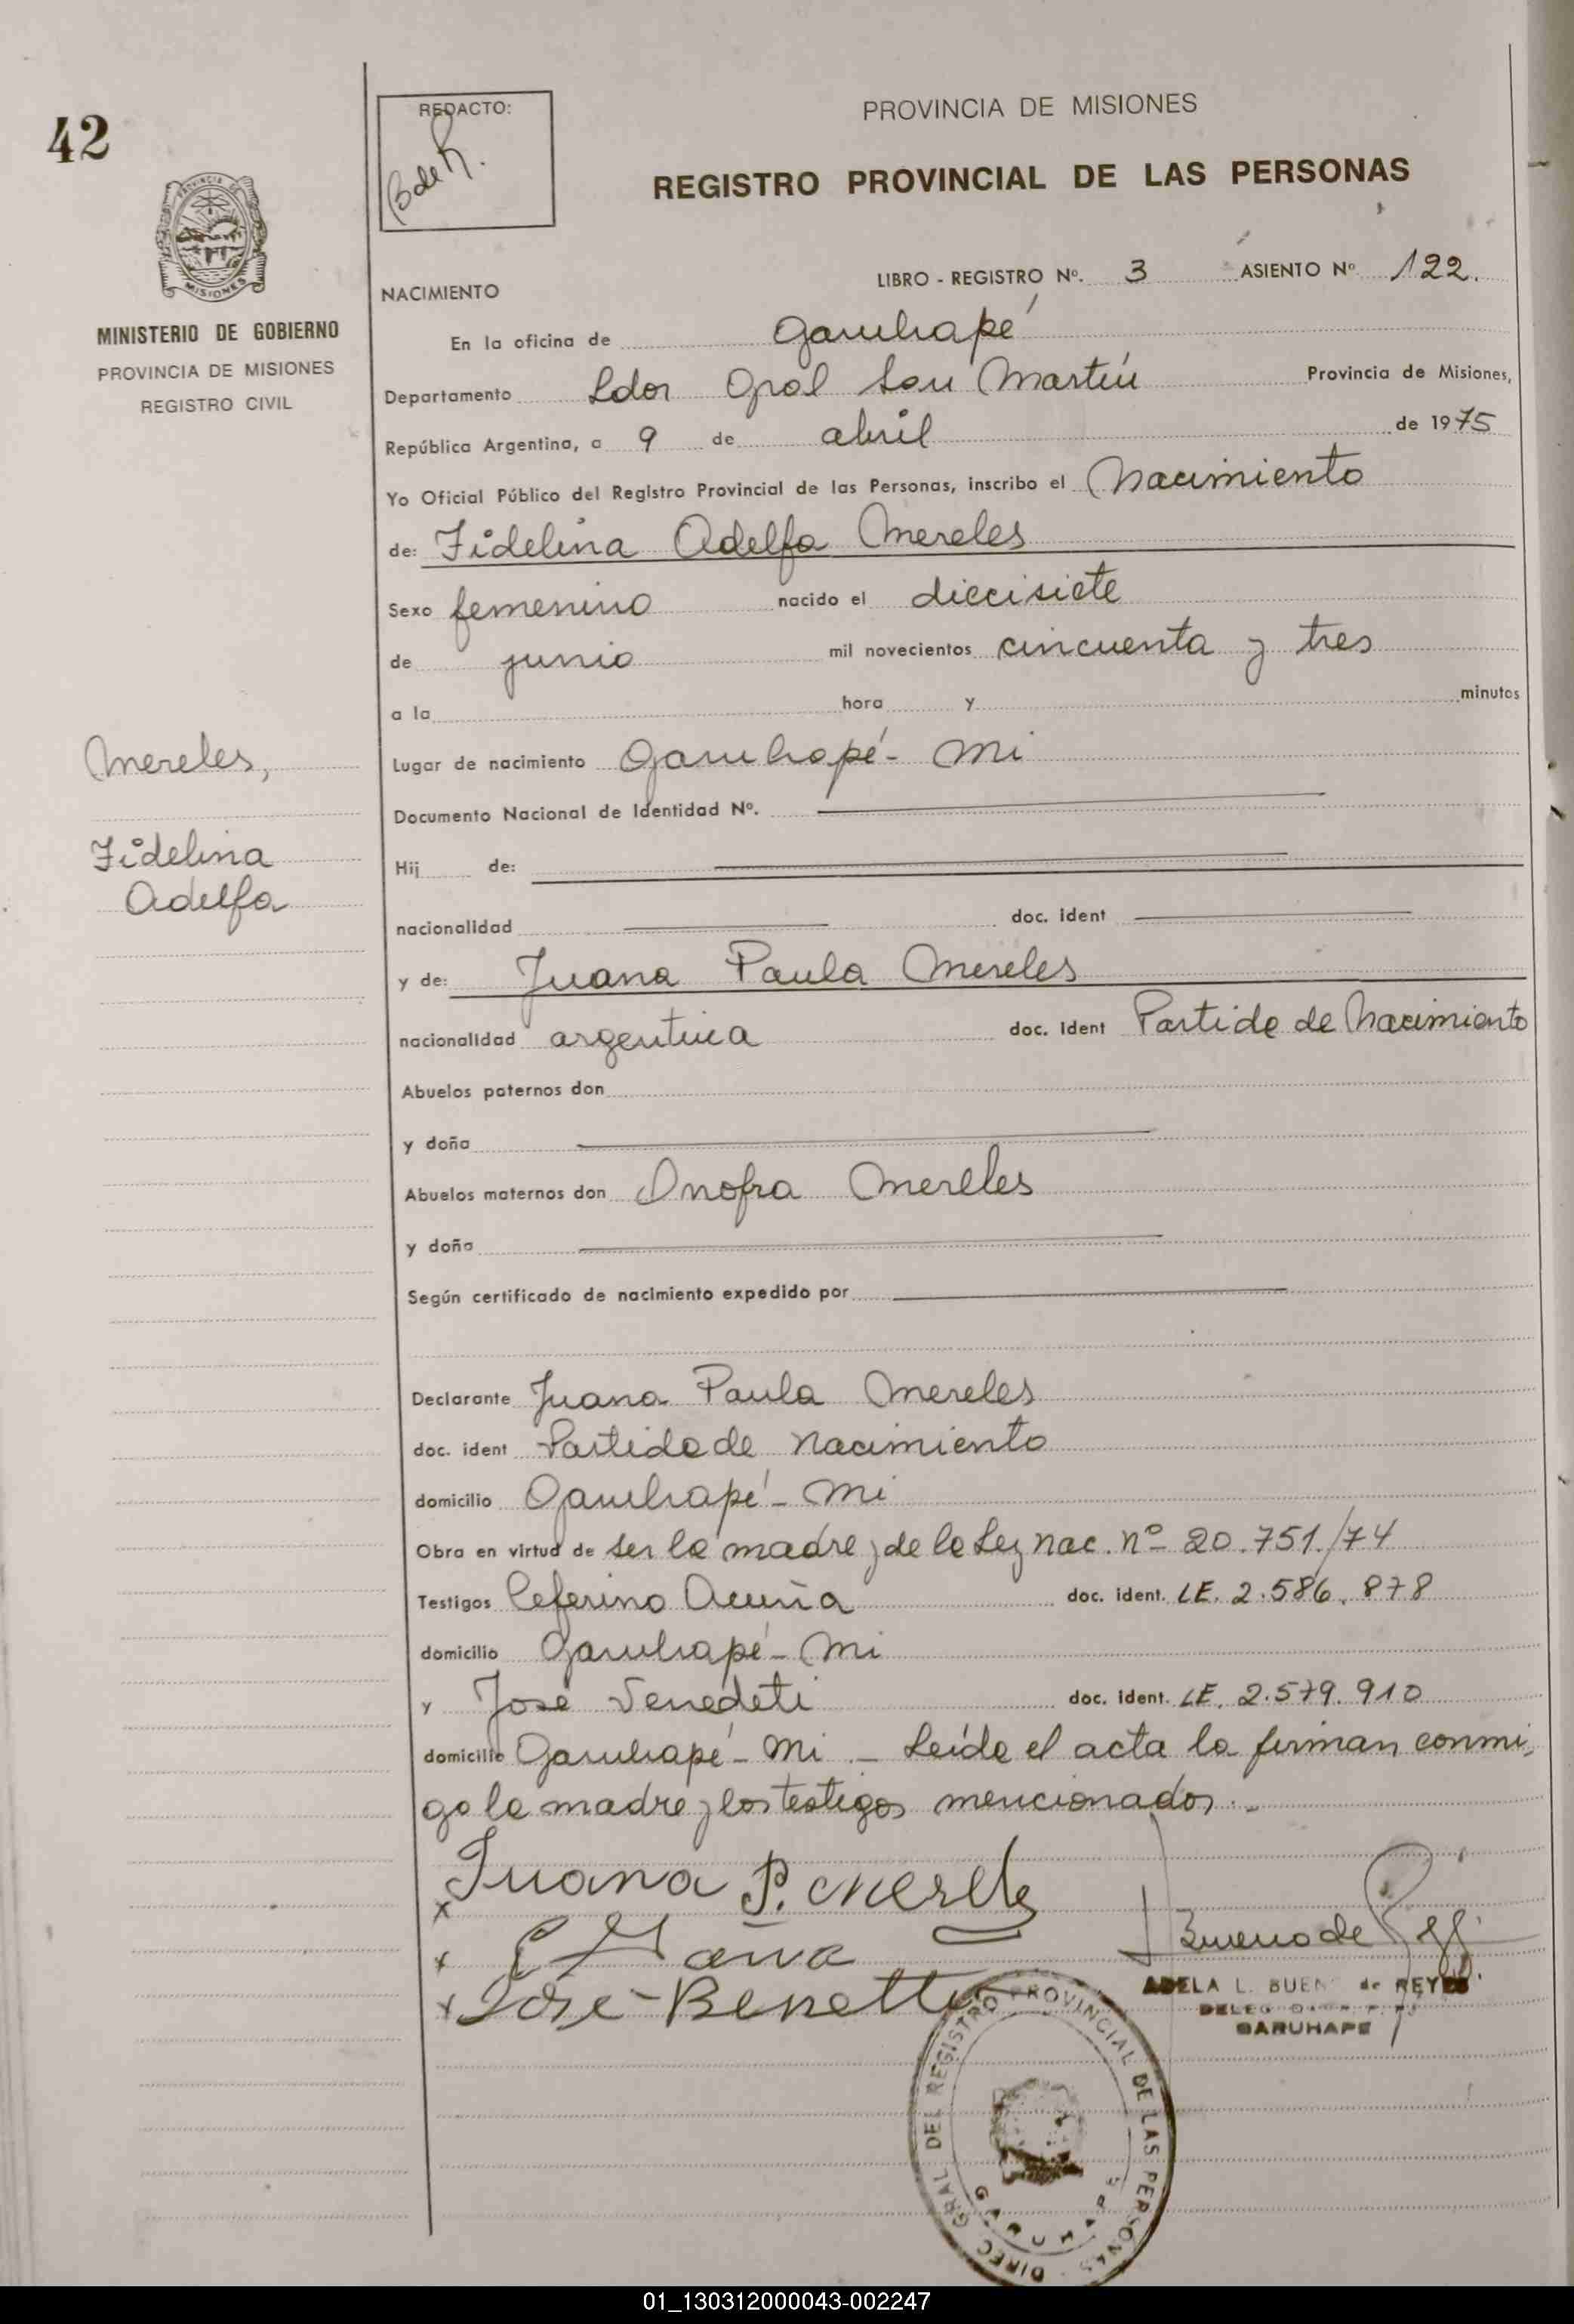 42
REDACTO:
B de R.
PROVINCIA DE MISIONES
REGISTRO PROVINCIAL DE LAS PERSONAS
PROVINCIA DE
MISIONES
MINISTERIO DE GOBIERNO
PROVINCIA DE MISIONES
REGISTRO CIVIL
LIBRO - REGISTRO Nº. 3 ASIENTO Nº 122.
NACIMIENTO
En la oficina de Garuhapé
Departamento Ldor Gral San Martín Provincia de Misiones,
República Argentina, a 9 de abril de 1975
Yo Oficial Público del Registro Provincial de las Personas, inscribo el Nacimiento
de: Fidelina Adelfa Mereles
Sexo femenino nacido el diecisiete
de junio mil novecientos cincuenta y tres
a la hora y minutos
Mereles,
Fidelina
Adelfa
Lugar de nacimiento Garuhapé - Mi
Documento Nacional de Identidad Nº.
Hij de:
nacionalidad doc. ident
y de: Juana Paula Mereles
nacionalidad argentina doc. ident Partida de Nacimiento
Abuelos paternos don
y doña
Abuelos maternos don Onofra Mereles
y doña
Según certificado de nacimiento expedido por
Declarante Juana Paula Mereles
doc. ident Partida de Nacimiento
domicilio Garuhapé - Mi
Obra en virtud de ser la madre y de la Ley nac. nº 20.751./74
Testigos Ceferino Acuña doc. ident. LE. 2.586.878
domicilio Garuhapé - Mi
y José Venedeti doc. ident. LE. 2.579.910
domicilio Garuhapé - Mi - Leída el acta la firman conmi-
go la madre y los testigos mencionados.-
x Juana P. Merele
x
x José Benetti
Bueno de
ADELA L. BUENO de REYES
GARUHAPE
DIREC. GRAL. DEL REGISTRO PROVINCIAL DE LAS PERSONAS
GARUHAPE
01_130312000043-002247